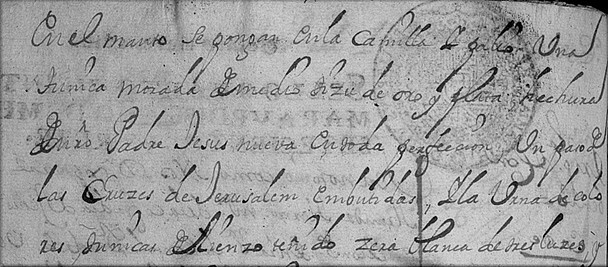 En el manto se pongan en la Camilla y palio Una
tunica morada de medio tizu de oro y plata, hechura
de nro Padre Jesus nueva en toda perfeccion. Un par de
las Cruzes de Jerusalem embutidas, y la Urna de colo
res, tunicas de lienzo teñido zera blanca de tres luzes, y